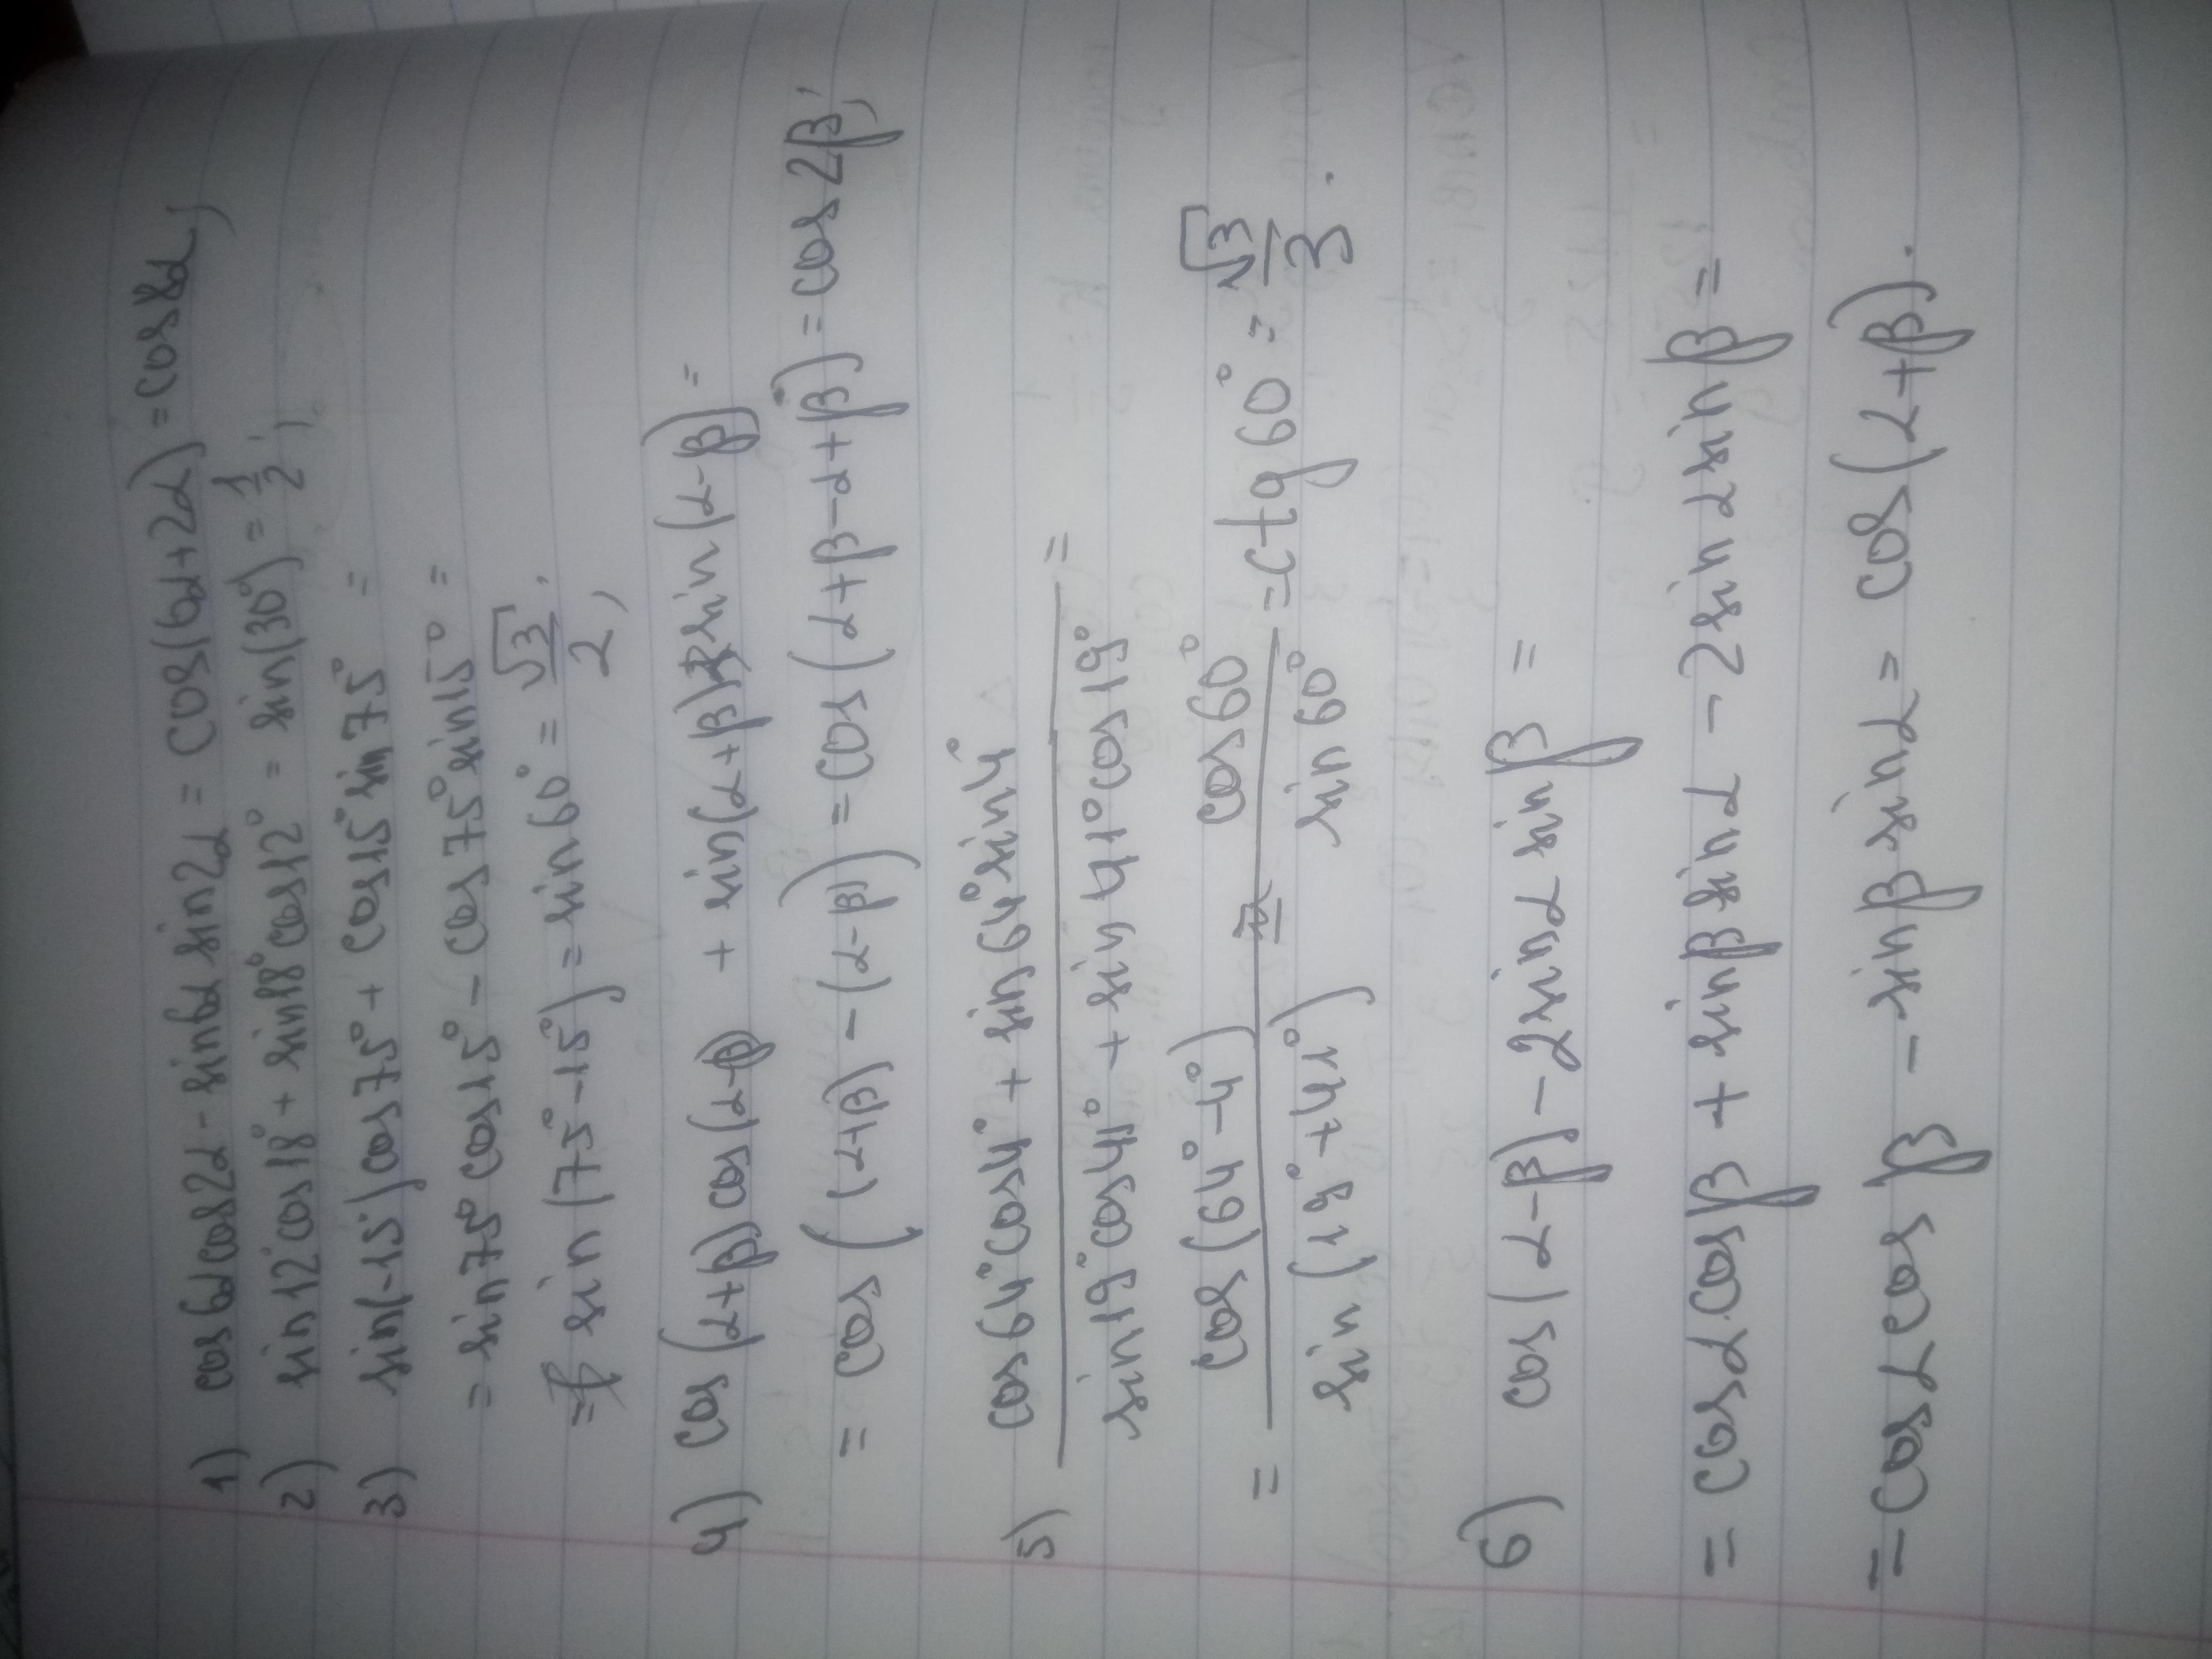 1) cos6αcos2α - sin6αsin2α = cos(6α+2α) = cos8α;
2) sin12°cos18° + sin18°cos12° = sin(30°) = 1/2;
3) sin(-15°)cos75° + cos15°sin75° =
= sin75°cos15° - cos75°sin15° =
= sin(75°-15°) = sin60° = √3/2;
4) cos(α+β)cos(α-β) + sin(α+β)sin(α-β) =
= cos((α+β) - (α-β)) = cos(α+β-α+β) = cos2β;
5) cos64°cos4° + sin64°sin4° / sin19°cos41° + sin41°cos19° =
= cos(64°-4°) / sin(19°+41°) = cos60° / sin60° = ctg60° = √3/3.
6) cos(α-β) - 2sinαsinβ =
= cosαcosβ + sinβsinα - 2sinαsinβ =
= cosαcosβ - sinβsinα = cos(α+β).